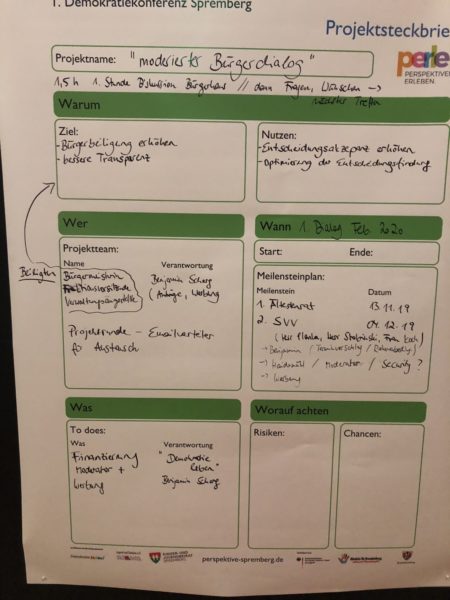 1. Demokratiekonferenz Spremberg
Projektsteckbrie
perle
PERSPEKTIVE
ERLEBEN.
Projektname: "moderierter Bürgerdialog"
1,5 h 1. Stunde Diskussion Bürgerhaus // dann Fragen, Wünschen ->
nächster Treffen
Warum
Ziel:
- Bürgerbeiligung erhöhen
- bessere Transparenz
Nutzen:
- Entscheidungsakzeptanz erhöhen
- Optimierung der Entscheidungsfindung
Wer
Projektteam:
Name
Verantwortung
Beteiligten
Bürgermeisterin
Fraktionsvorsitzende
Verwaltungsangestellte
Benjamin
(Anfrage, Werbung)
Projektrunde - Emailverteiler
Austausch
Wann 1. Dialog Feb. 2020
Start:
Ende:
Meilensteinplan:
Meilenstein
Datum
1. Ältestenrat 13.11.19
2. SVV 04.12.19
Frau Koch)
- Benjamin
/ Moderation / Security ?
-> Werbung
Was
To does:
Was
Verantwortung
Finanzierung
Moderator +
Werbung
"Demokratie
leben"
Benjamin
Worauf achten
Risiken:
Chancen:
perspektive-spremberg.de